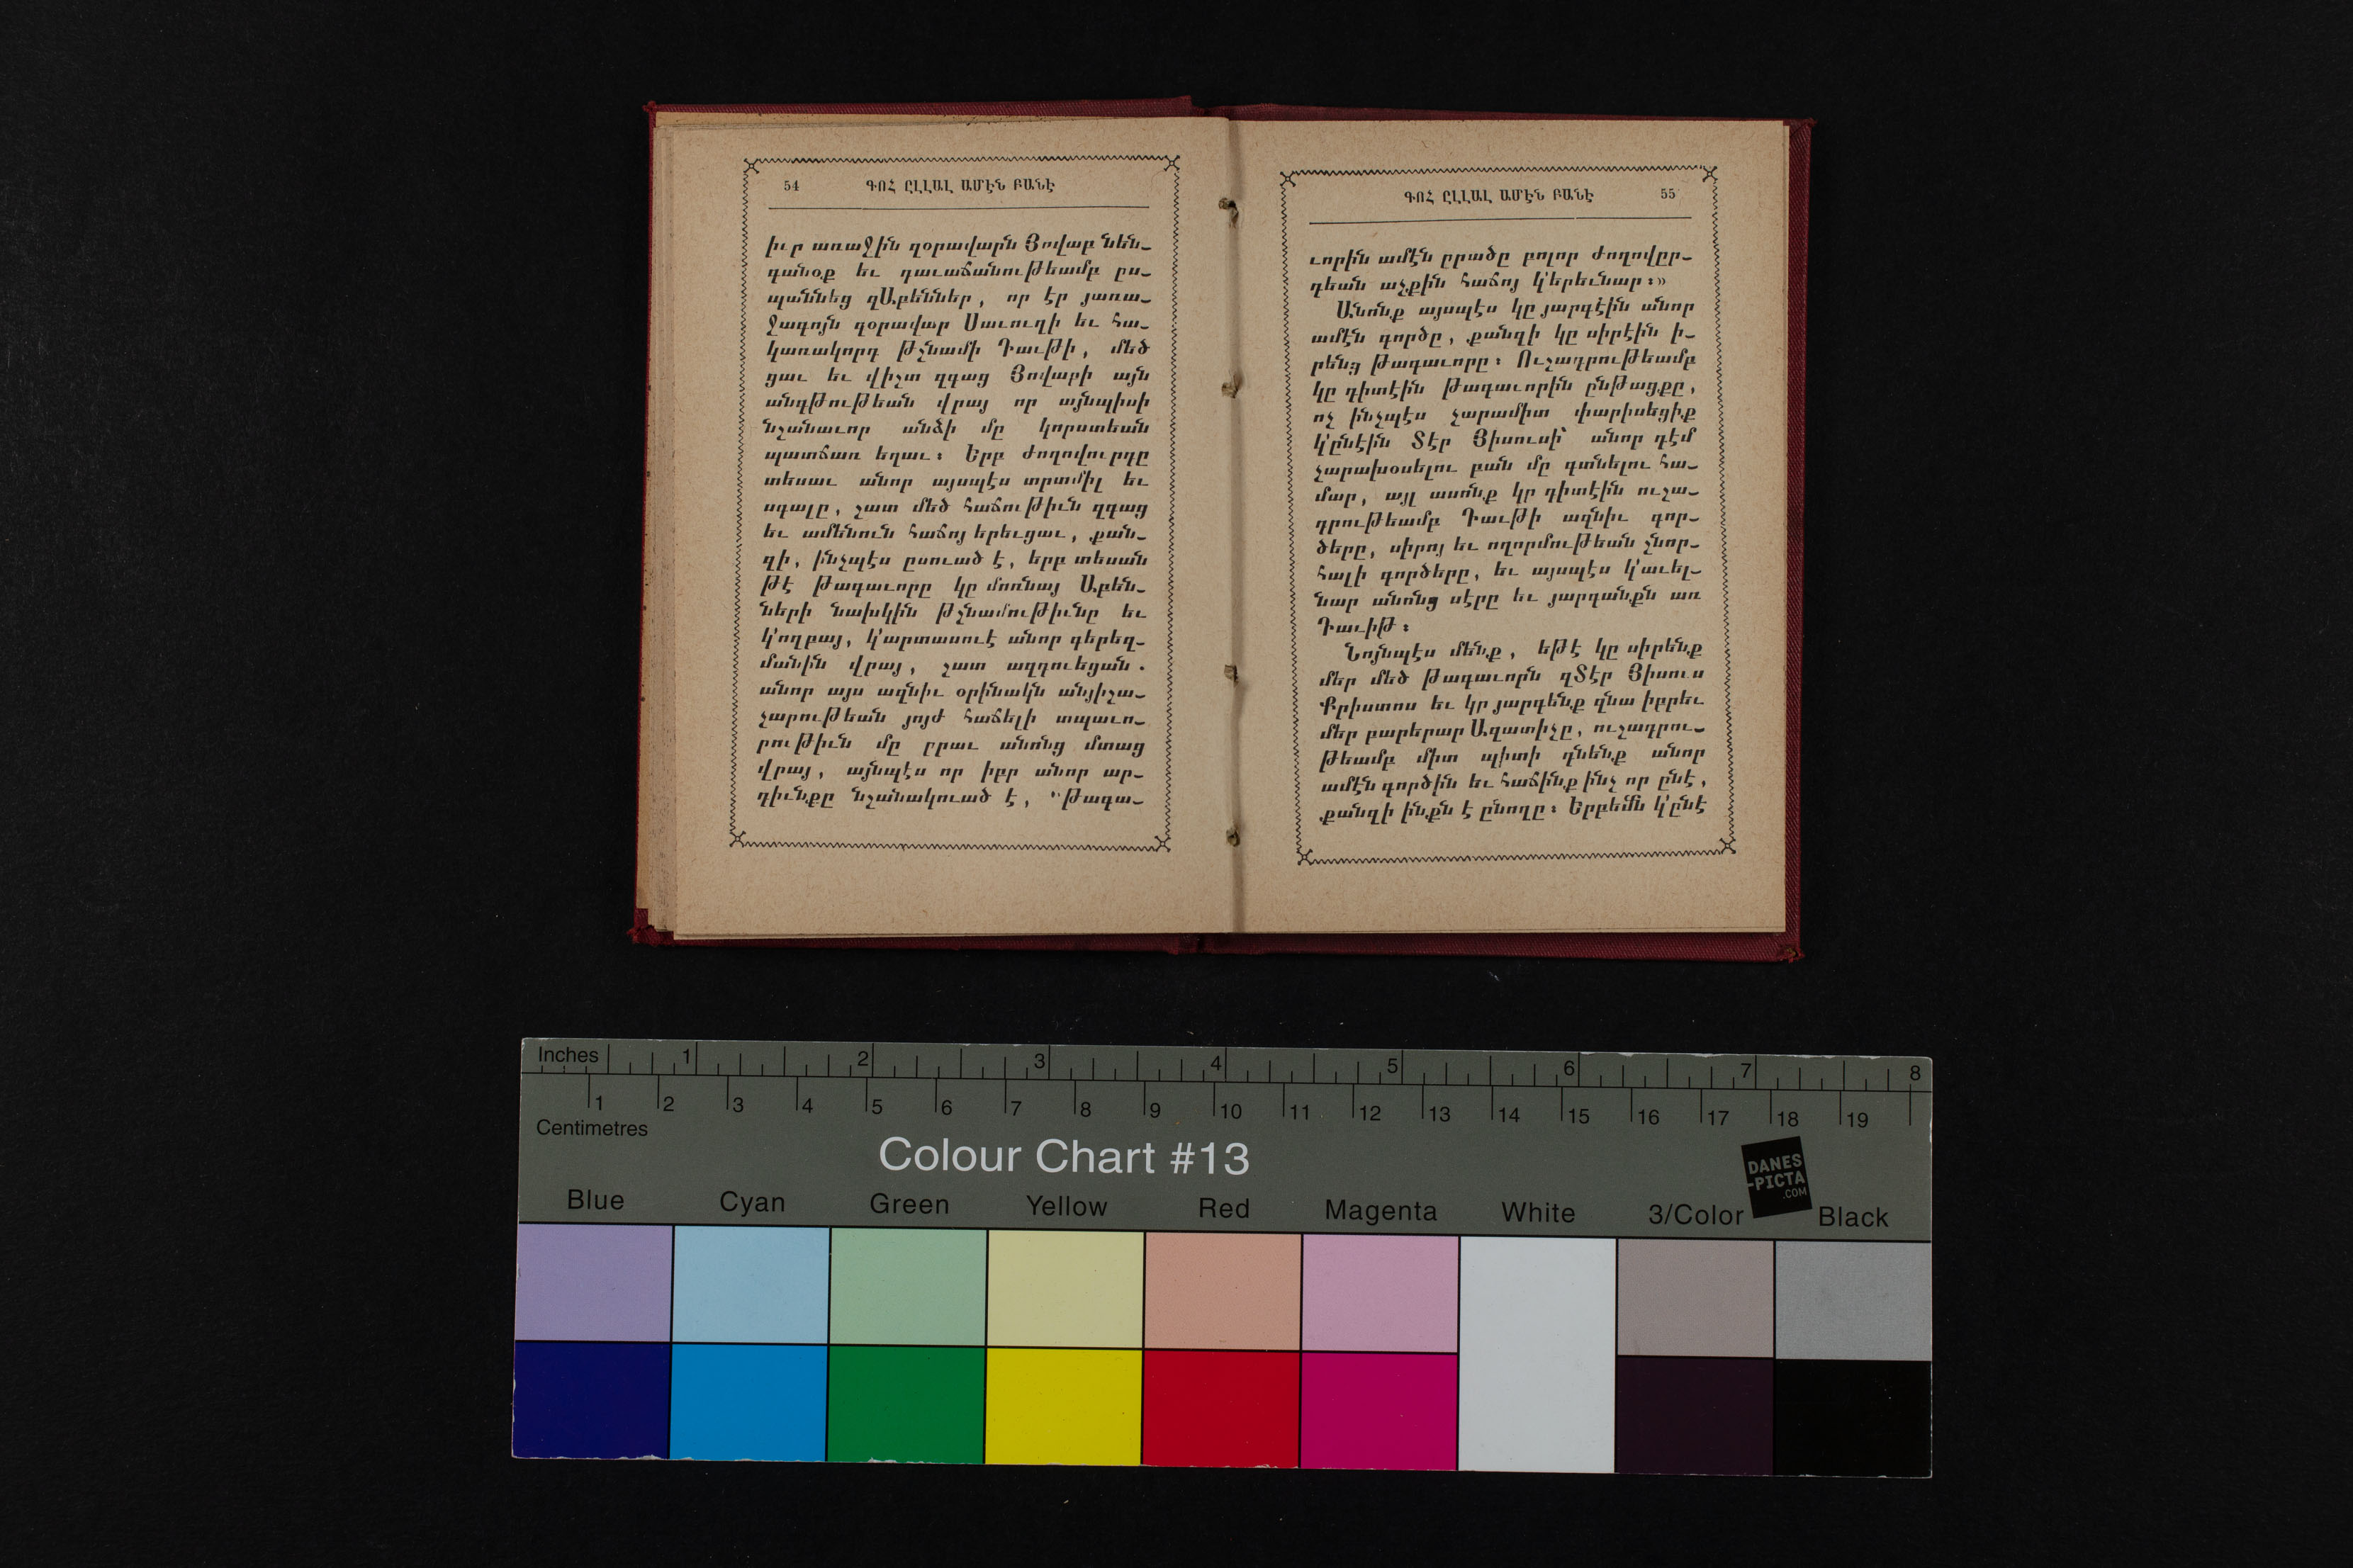 54 ԳՈՀ ԸԼԼԱԼ ԱՄԷՆ ԲԱՆԷ
իւր առաջին զօրավարն Յովաբ նեն-
գանօք եւ դաւաճանութեամբ ըս-
պաննեց զԱբեններ, որ էր յառա-
ջագոյն զօրավար Սաւուղի եւ հա-
կառակորդ թշնամի Դաւթի, մեծ
ցաւ եւ վիշտ զգաց Յովաբի այն
անգթութեան վրայ որ այնպիսի
նշանաւոր անձի մը կորստեան
պատճառ եղաւ։ Երբ ժողովուրդը
տեսաւ անոր այսպէս տրտմիլ եւ
սգալը, շատ մեծ հաճութիւն զգաց
եւ ամենուն հաճոյ երեւցաւ, քան-
զի, ինչպէս ըսուած է, երբ տեսան
թէ թագաւորը կը մոռնայ Աբեն-
ների նախկին թշնամութիւնը եւ
կ՚ողբայ, կ՚արտասուէ անոր գերեզ-
մանին վրայ, շատ ազդուեցան.
անոր այս ազնիւ օրինակն անյիշա-
չարութեան յոյժ հաճելի տպաւո-
րութիւն մը ըրաւ անոնց մտաց
վրայ, այնպէս որ իբր անոր ար-
դիւնքը նշանակուած է, "Թագա-
ԳՈՀ ԸԼԼԱԼ ԱՄԷՆ ԲԱՆԷ 55
ւորին ամէն ըրածը բոլոր ժողովըր-
դեան աչքին հաճոյ կ՚երեւնար։»
Անոնք այսպէս կը յարգէին անոր
ամէն գործը, քանզի կը սիրէին ի-
րենց թագաւորը։ Ուշադրութեամբ
կը դիտէին թագաւորին ընթացքը,
ոչ ինչպէս չարամիտ փարիսեցիք
կ՚ընէին Տէր Յիսուսի՝ անոր դէմ
չարախօսելու բան մը գտնելու հա-
մար, այլ ասոնք կը դիտէին ուշա-
դրութեամբ Դաւթի ազնիւ գոր-
ծերը, սիրոյ եւ ողորմութեան շնոր-
հալի գործերը, եւ այսպէս կ՚աւել-
նար անոնց սէրը եւ յարգանքն առ
Դաւիթ։
Նոյնպէս մենք, եթէ կը սիրենք
մեր մեծ Թագաւորն զՏէր Յիսուս
Քրիստոս եւ կը յարգենք զնա իբրեւ
մեր բարերար Ազատիչը, ուշադրու-
թեամբ միտ պիտի դնենք անոր
ամէն գործին եւ հաճինք ինչ որ ընէ,
քանզի ինքն է ընողը։ Երբեմն կ՚ընէ
Inches 1 2 3 4 5 6 7 8
1 2 3 4 5 6 7 8 9 10 11 12 13 14 15 16 17 18 19
Centimetres
Colour Chart #13
DANES
-PICTA
.COM
Blue Cyan Green Yellow Red Magenta White 3/Color Black